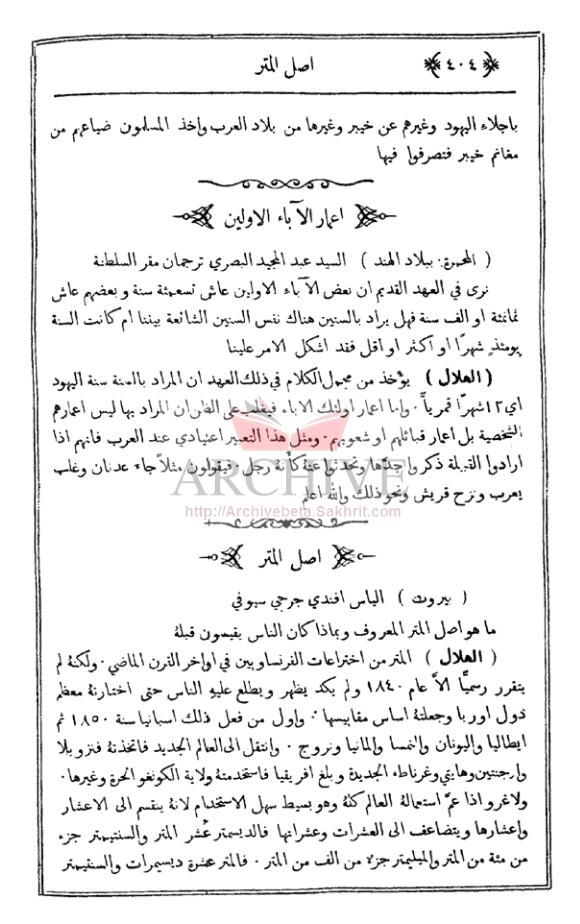 ﴿٤٠٤﴾ اصل المتر
باجلاء اليهود وغيرهم عن خيبر وغيرها من بلاد العرب واخذ المسلمون ضياعهم من
مغانم خيبر فتصرفوا فيها
اعمار الآباء الاولين
( المحمرة: ببلاد الهند ) السيد عبد المجيد البصري ترجمان مقر السلطنة
نرى في العهد القديم ان بعض الآباء الاولين عاش تسعمئة سنة وبعضهم عاش
ثمانمئة او الف سنة فهل يراد بالسنين هناك نفس السنين الشائعة بيننا ام كانت السنة
يومئذٍ شهرًا او اكثر او اقل فقد اشكل الامر علينا
( الهلال ) يؤخذ من مجمل الكلام في ذلك العهد ان المراد بالسنة سنة اليهود
اي ١٢ شهرًا قمرياً . واما اعمار اولئك الآباء فيغلب على الظن ان المراد بها ليس اعمارهم
الشخصية بل اعمار قبائلهم او شعوبهم . ومثل هذا التعبير اعتيادي عند العرب فانهم اذا
ارادوا القبيلة ذكروا جدَّها وتحدثوا عنهُ كأنهُ رجل . فيقولون مثلاً جاء عدنان وغلب
يعرب ونزح قريش ونحو ذلك والله اعلم
ARCHIVE
http://Archivebeta.Sakhrit.com
اصل المتر
( بيروت ) الياس افندي جرجي سيوفي
ما هو اصل المتر المعروف وبماذا كان الناس يقيسون قبلهُ
( الهلال ) المتر من اختراعات الفرنساويين في اواخر القرن الماضي . ولكنهُ لم
يتقرر رسميًّا الاَّ عام ١٨٤٠ ولم يكد يظهر ويطلع عليهِ الناس حتى اختارتهُ معظم
دول اوربا وجعلتهُ اساس مقاييسها . واول من فعل ذلك اسبانيا سنة ١٨٥٠ ثم
ايطاليا واليونان والنمسا والمانيا ونروج . وانتقل الى العالم الجديد فاتخذتهُ فنزويلا
وارجنتين وهايتي وغرناطه الجديدة وبلغ افريقيا فاستخدمتهُ ولاية الكونغو الحرة وغيرها .
ولا غرو اذا عمَّ استعمالهُ العالم كلهُ وهو بسيط سهل الاستخدام لانهُ ينقسم الى الاعشار
واعشارها ويتضاعف الى العشرات وعشراتها فالديسمتر عُشر المتر والسنتيمتر جزء
من مئة من المتر والميليمتر جزء من الف من المتر . فالمتر عشرة ديسيمترات والسنتيمتر